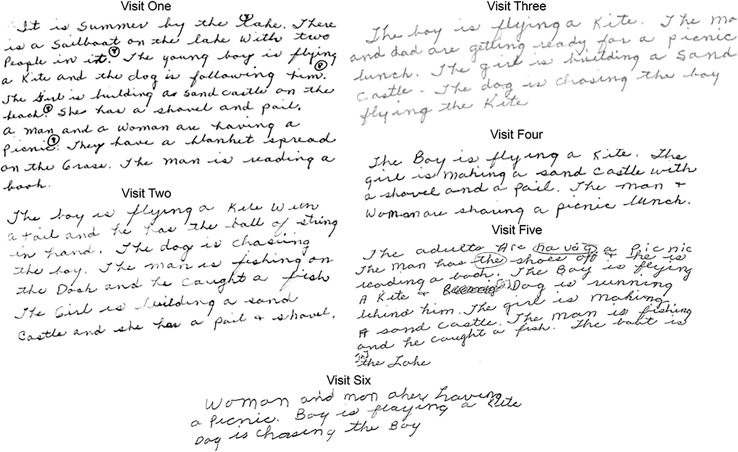 Visit One
It is Summer by the Lake. There
is a Sailboat on the lake with two
People in it. The young boy is flying
a Kite and the dog is following him.
The Girl is building as sand castle on the
beach. She has a shovel and pail.
a man and a woman are having a
Picnic. They have a blanket spread
on the Grass. The man is reading a
book.
Visit Two
The boy is flying a Kite With
a tail and he has the ball of string
in hand. The dog is chasiing
the boy. The man is fishing on
the Dosh and he caught a fish
The Girl is building a sand
Castle and she has a Pail & shovel.
Visit Three
The boy is flying a Kite. The mo
and dad are getting ready for a picnic
lunch. The girl is building a Sand
Castle. The dog is chasing the boy
flying the Kite
Visit Four
The Boy is flying a Kite. The
girl is making a sand Castle with
a shovel and a Pail. The man +
Woman are sharing a picnic lunch.
Visit Five
The adults Are havig a Picnic
The man has the shoes off & she is
reading a book. The Boy is flying
A Kite & Dog is running
behind him. The girl is making
A sand castle. The man is fishing
and he caught a fish. The boat is
in
the Lake
Visit Six
Woman and mon aher having
a Picnic. Boy is flaying a Kite
Dog is chasing the Boy